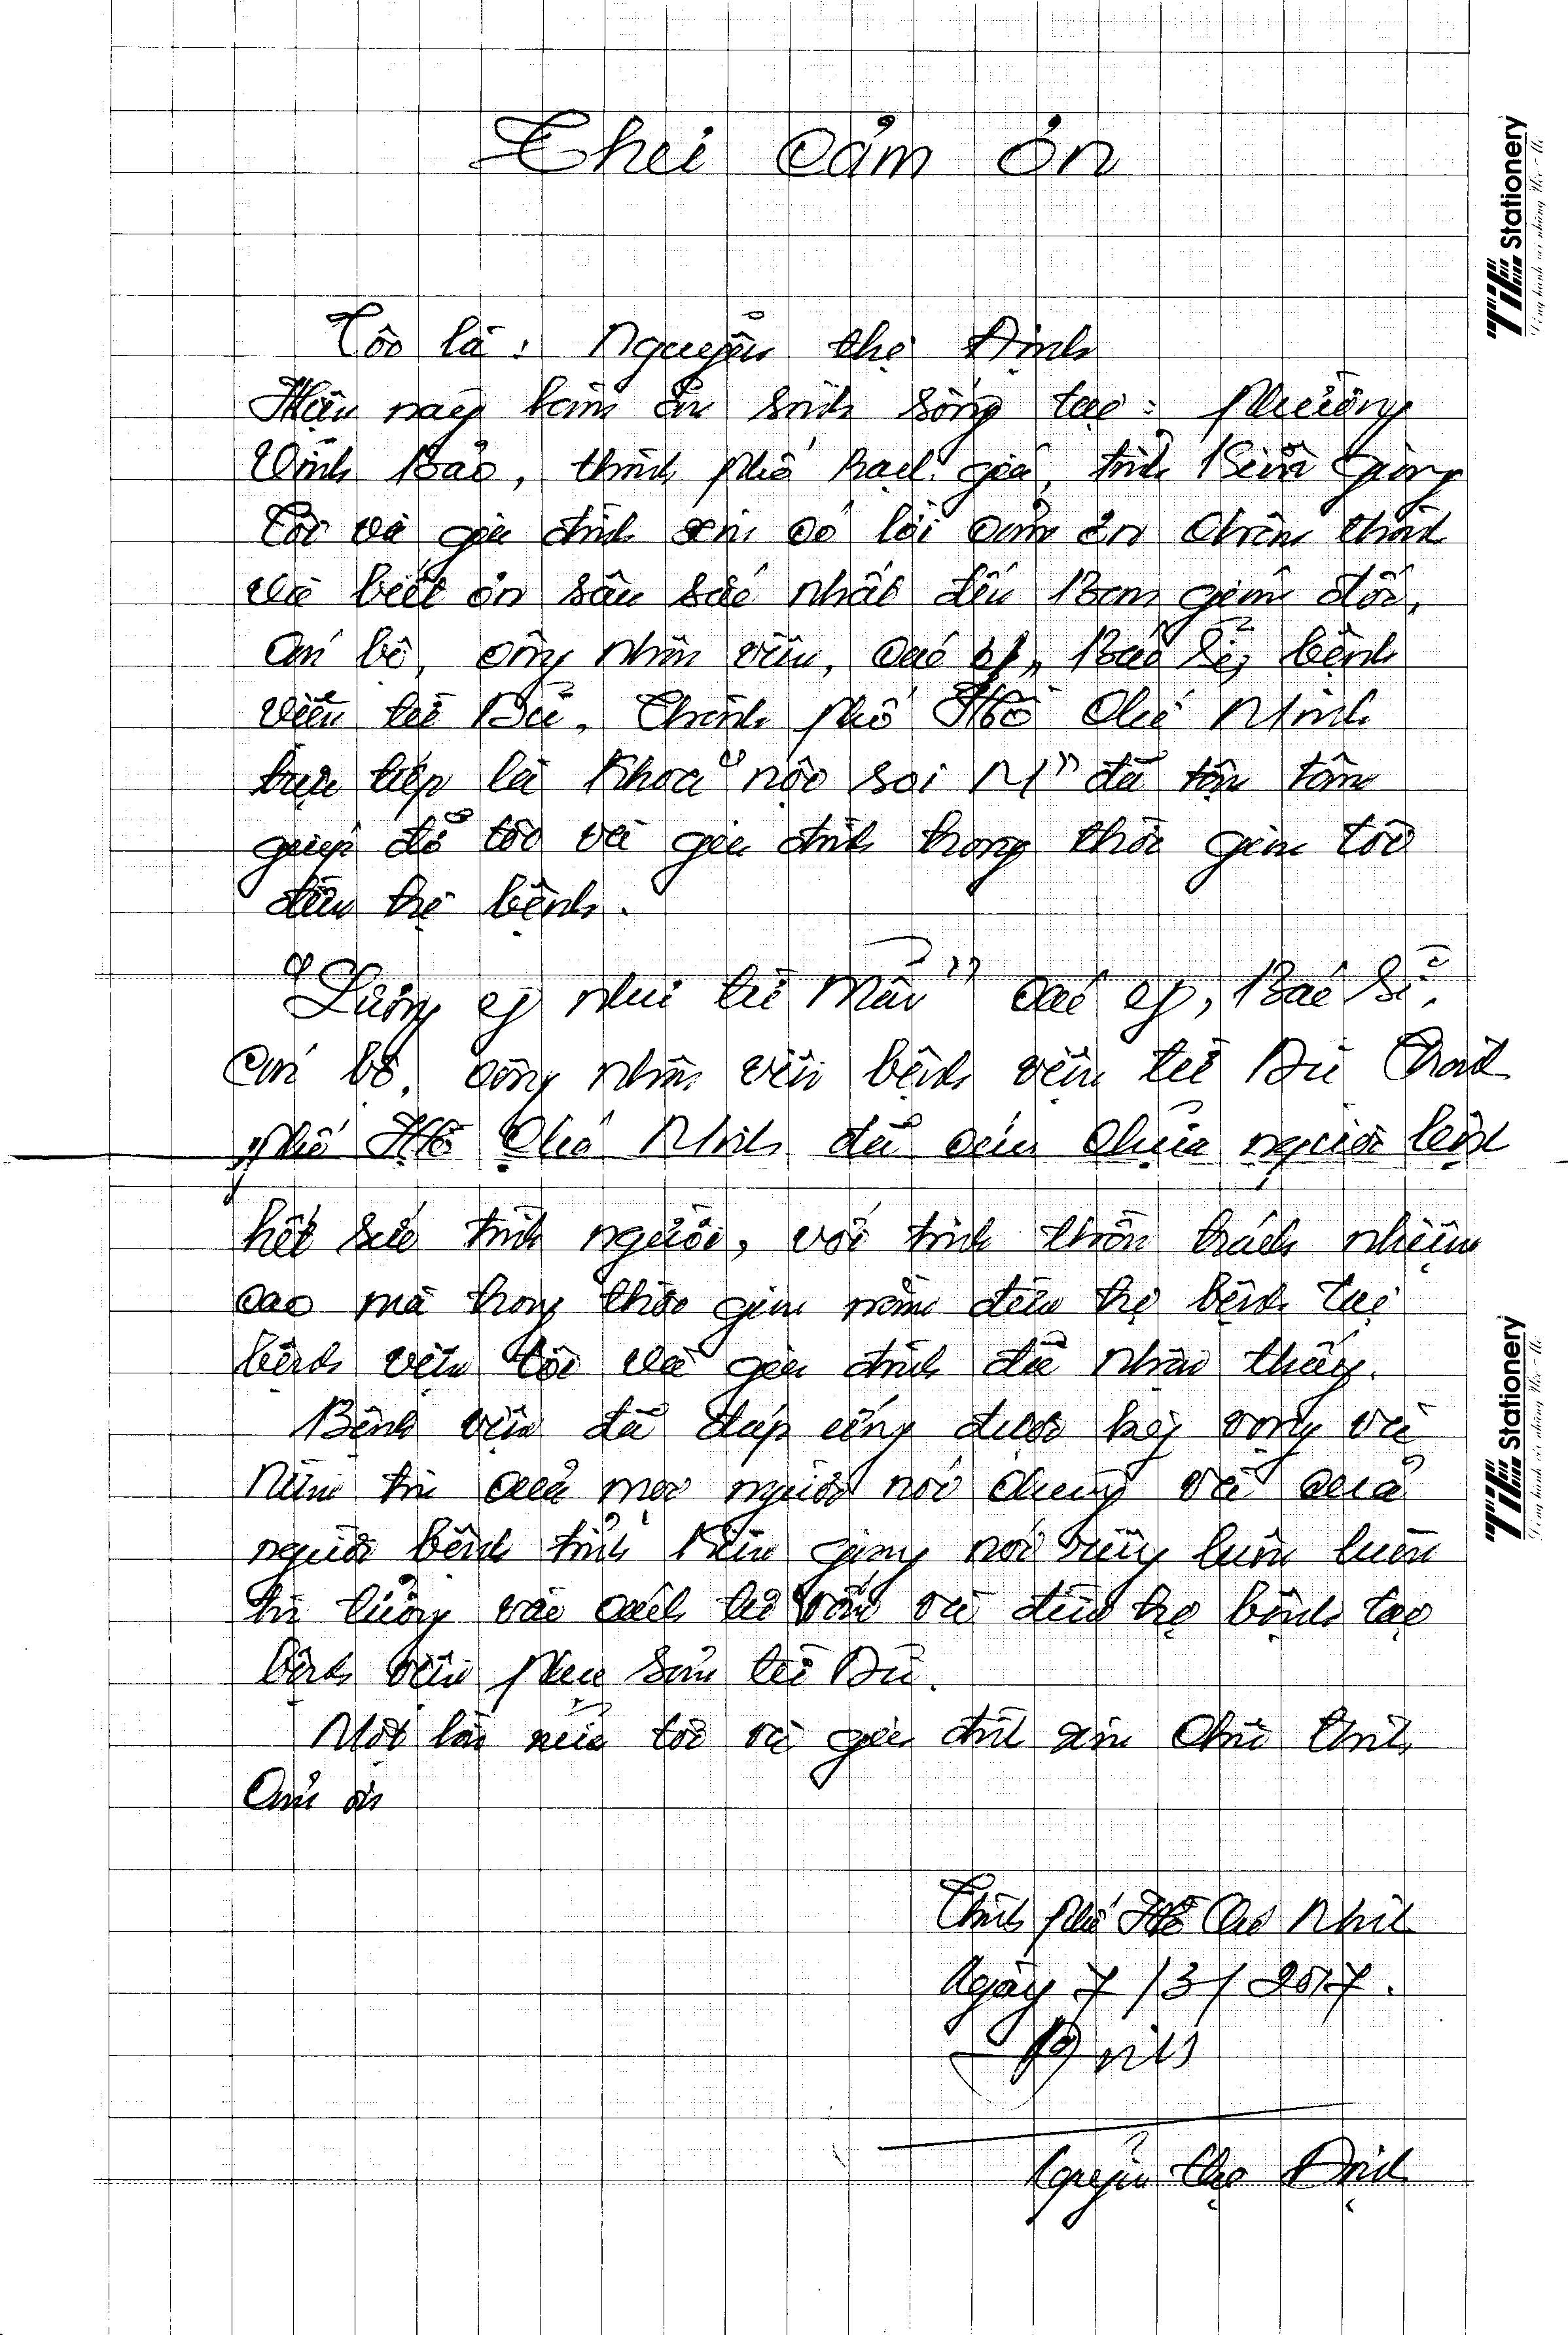 Thư Cảm ơn
Tôi là: Nguyễn thị Định
Hiện nay làm ăn sinh sống tại: Phường
Vĩnh Bảo, thành phố Rạch giá, tỉnh Kiên giang
Tôi và gia đình xin có lời cảm ơn chân thành
và biết ơn sâu sắc nhất đến Ban giám đốc,
cán bộ, công nhân viên, các y, Bác sĩ, bệnh
viện từ Dũ, Thành phố Hồ Chí Minh
trực tiếp là Khoa "nội soi M" đã tận tâm
giúp đỡ tôi và gia đình trong thời gian tôi
điều trị bệnh.
"Lương y như từ mẫu" các y, Bác sĩ,
cán bộ, công nhân viên bệnh viện từ Dũ Thành
phố Hồ Chí Minh đã cứu chữa người bệnh
hết sức tình người, với tinh thần trách nhiệm
cao mà trong thời gian nằm điều trị bệnh tại
bệnh viện tôi và gia đình đã nhận thấy.
Bệnh viện đã đáp ứng được kỳ vọng và
niềm tin của mọi người nói chung và của
người bệnh tỉnh Kiên giang nói riêng luôn luôn
tin tưởng vào cách tư vấn và điều trị bệnh tại
bệnh viện phụ sản từ Dũ.
Một lần nữa tôi và gia đình xin chân thành
Cảm ơn
Thành phố Hồ Chí Minh
Ngày 7/3/2017.
Nguyễn thị Định
TiTi Stationery
Đồng hành với những Thứ - Tư
TiTi Stationery
Đồng hành với những Thứ - Tư